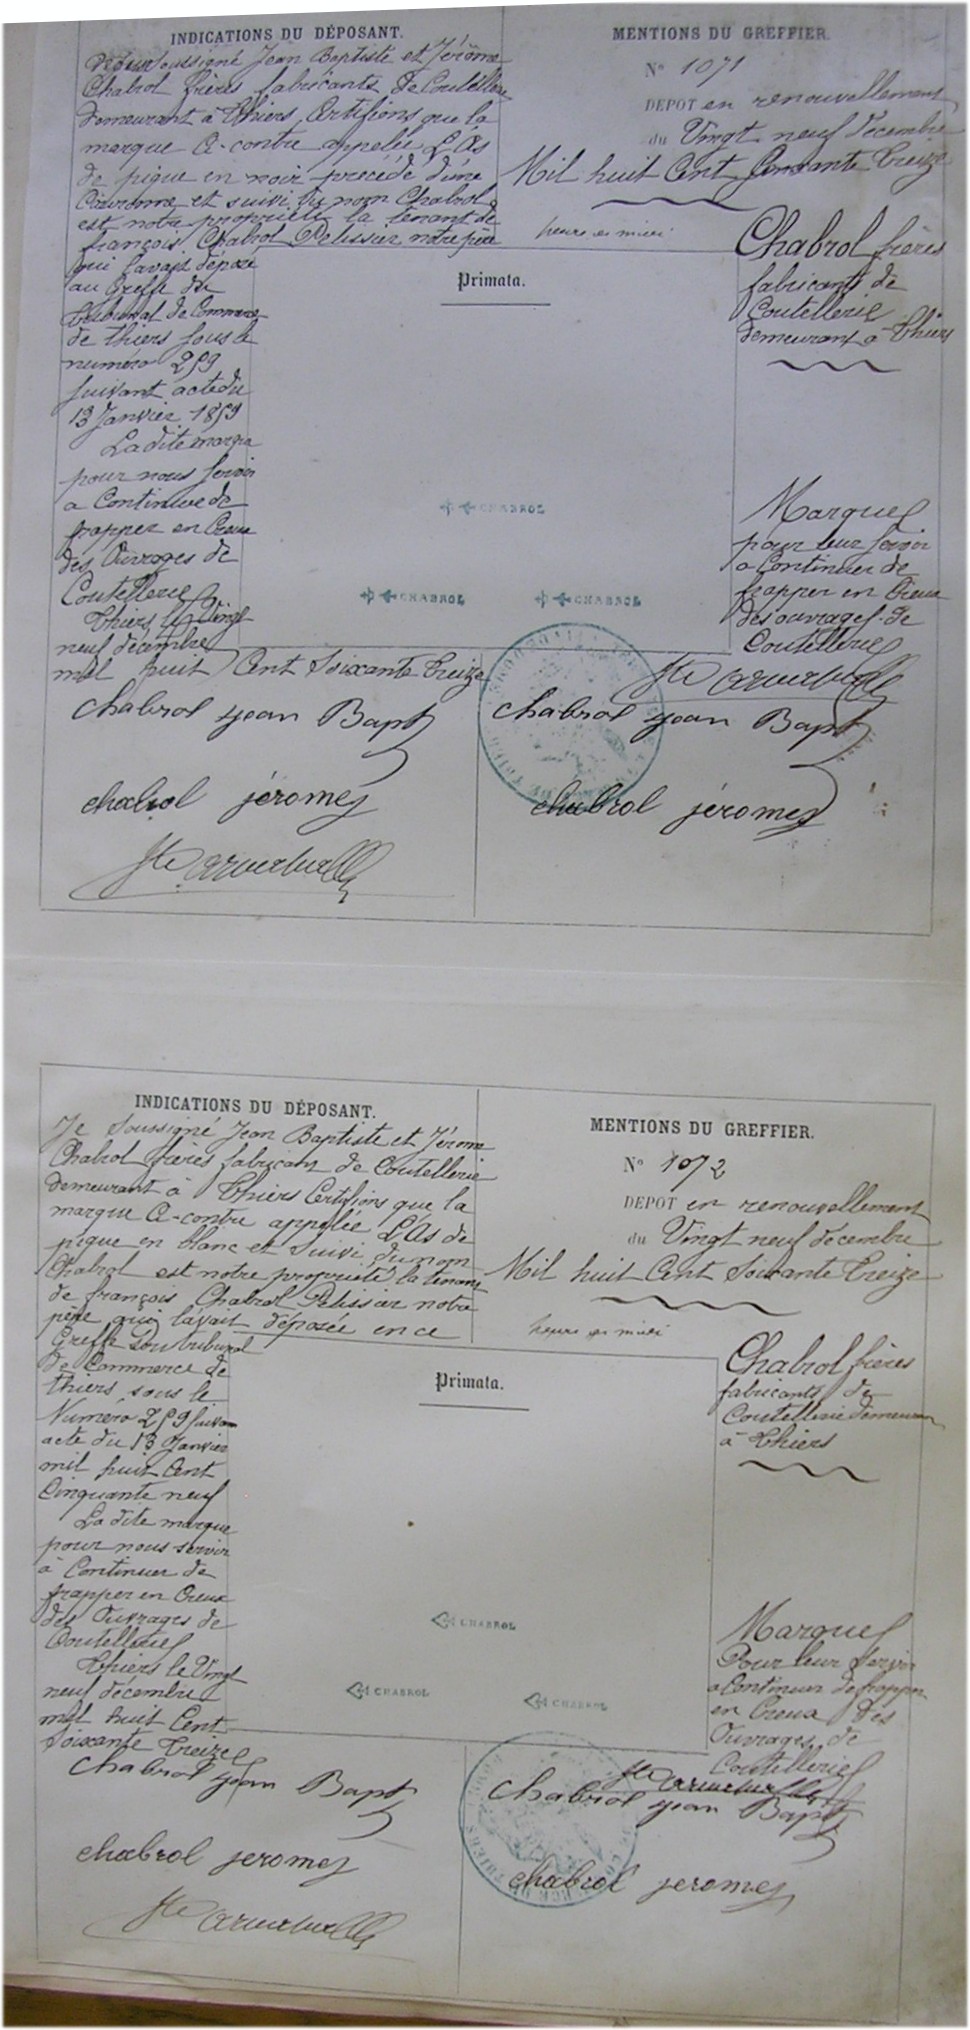 INDICATIONS DU DÉPOSANT.
soussigné Jean Baptiste et Jérôme
Chabrol frères fabricants de Coutellerie
demeurant à Thiers, Certifions que la
marque Ci-contre appelée L'As
de pique en noir précédé d'une
Couronne et suivi du nom Chabrol
est notre propriété la tenant de
françois Chabrol Pelissier notre père
qui l'avait déposé
au Greffe du
tribunal de Commerce
de thiers sous le
numéro 259
suivant acte du
13 Janvier 1859
La dite marque
pour nous servir
a Continuer de
frapper en Creux
des Ouvrages de
Coutellerie
Thiers le Vingt
neuf décembre
mil huit Cent Soixante treize
chabrol jean Bapt
chabrol jérome
MENTIONS DU GREFFIER.
No 1071
DEPOT en renouvellement
du Vingt neuf décembre
Mil huit Cent Soixante treize
Chabrol frères
fabricants de
Coutellerie
demeurant à Thiers
Primata.
CHABROL
CHABROL CHABROL
Marque
pour leur servir
a Continuer de
frapper en Creux
des ouvrages de
Coutellerie
chabrol jean Bapt
chabrol jérome
INDICATIONS DU DÉPOSANT.
Je Soussigné Jean Baptiste et Jérome
Chabrol frères fabricant de Coutellerie
demeurant à Thiers Certifions que la
marque Ci-contre appelée L'As de
pique en blanc et Suivi du nom
Chabrol est notre propriété la tenant
de françois Chabrol Pelissier notre
père qui l'avait déposée en ce
Greffe du tribunal
de Commerce de
thiers sous le
Numéro 259 suivant
acte du 13 Janvier
mil huit Cent
Cinquante neuf
La dite marque
pour nous servir
à Continuer de
frapper en Creux
des Ouvrages de
Coutellerie
Thiers le Vingt
neuf décembre
mil huit Cent
Soixante treize
chabrol jean Bapt
chabrol jerome
MENTIONS DU GREFFIER.
No 1072
DEPOT en renouvellement
du Vingt neuf décembre
Mil huit Cent Soixante treize
Chabrol frères
fabricants de
Coutellerie demeurant
à Thiers
Primata.
CHABROL
CHABROL CHABROL
Marque
Pour leur servir
a Continuer de frapper
en Creux des
Ouvrages de
Coutellerie
chabrol jean Bapt
chabrol jerome